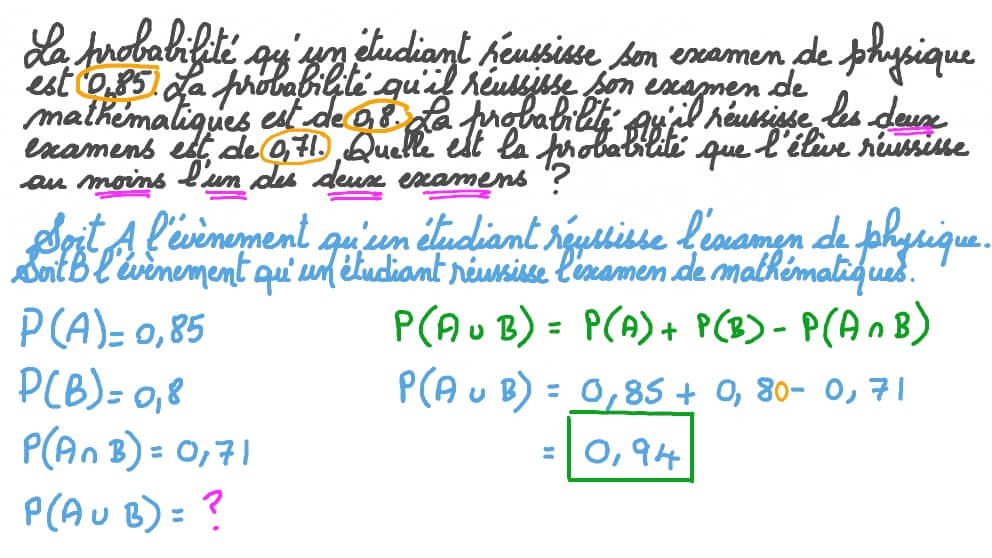 La probabilité qu'un étudiant réussisse son examen de physique
est 0,85. La probabilité qu'il réussisse son examen de
mathématiques est de 0,8. La probabilité qu'il réussisse les deux
examens est de 0,71. Quelle est la probabilité que l'élève réussisse
au moins l'un des deux examens ?
Soit A l'évènement qu'un étudiant réussisse l'examen de physique.
Soit B l'évènement qu'un étudiant réussisse l'examen de mathématiques.
P(A) = 0,85
P(B) = 0,8
P(A ∩ B) = 0,71
P(A ∪ B) = ?
P(A ∪ B) = P(A) + P(B) - P(A ∩ B)
P(A ∪ B) = 0,85 + 0,80 - 0,71
= 0,94